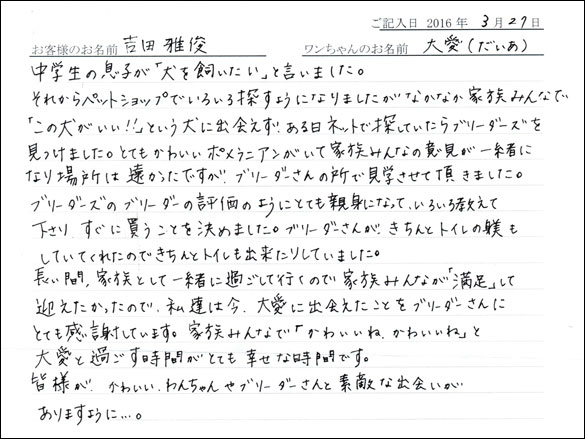 ご記入日 2016年 3月27日
お客様のお名前 吉田 雅俊 ワンちゃんのお名前 大愛(だいあ)
中学生の息子が「犬を飼いたい」と言いました。
それからペットショップでいろいろ探すようになりましたがなかなか家族みんなで
「この犬がいい!!」という犬に出会えず、ある日ネットで探していたらブリーダーズを
見つけました。とてもかわいいポメラニアンがいて家族みんなの意見が一緒に
なり場所は遠かったですが、ブリーダーさんの所で見学させて頂きました。
ブリーダーズのブリーダーの評価のようにとても親身になって、いろいろ教えて
下さり、すぐに買うことを決めました。ブリーダーさんが、きちんとトイレの躾も
していてくれたのできちんとトイレも出来たりしていました。
長い間、家族として一緒に過ごして行くので家族みんなが「満足」して
迎えたかったので、私達は今、大愛に出会えたことをブリーダーさんに
とても感謝しています。家族みんなで「かわいいね、かわいいね」と
大愛と過ごす時間がとても幸せな時間です。
皆様が、かわいい、わんちゃんやブリーダーさんと素敵な出会いが
ありますように…。